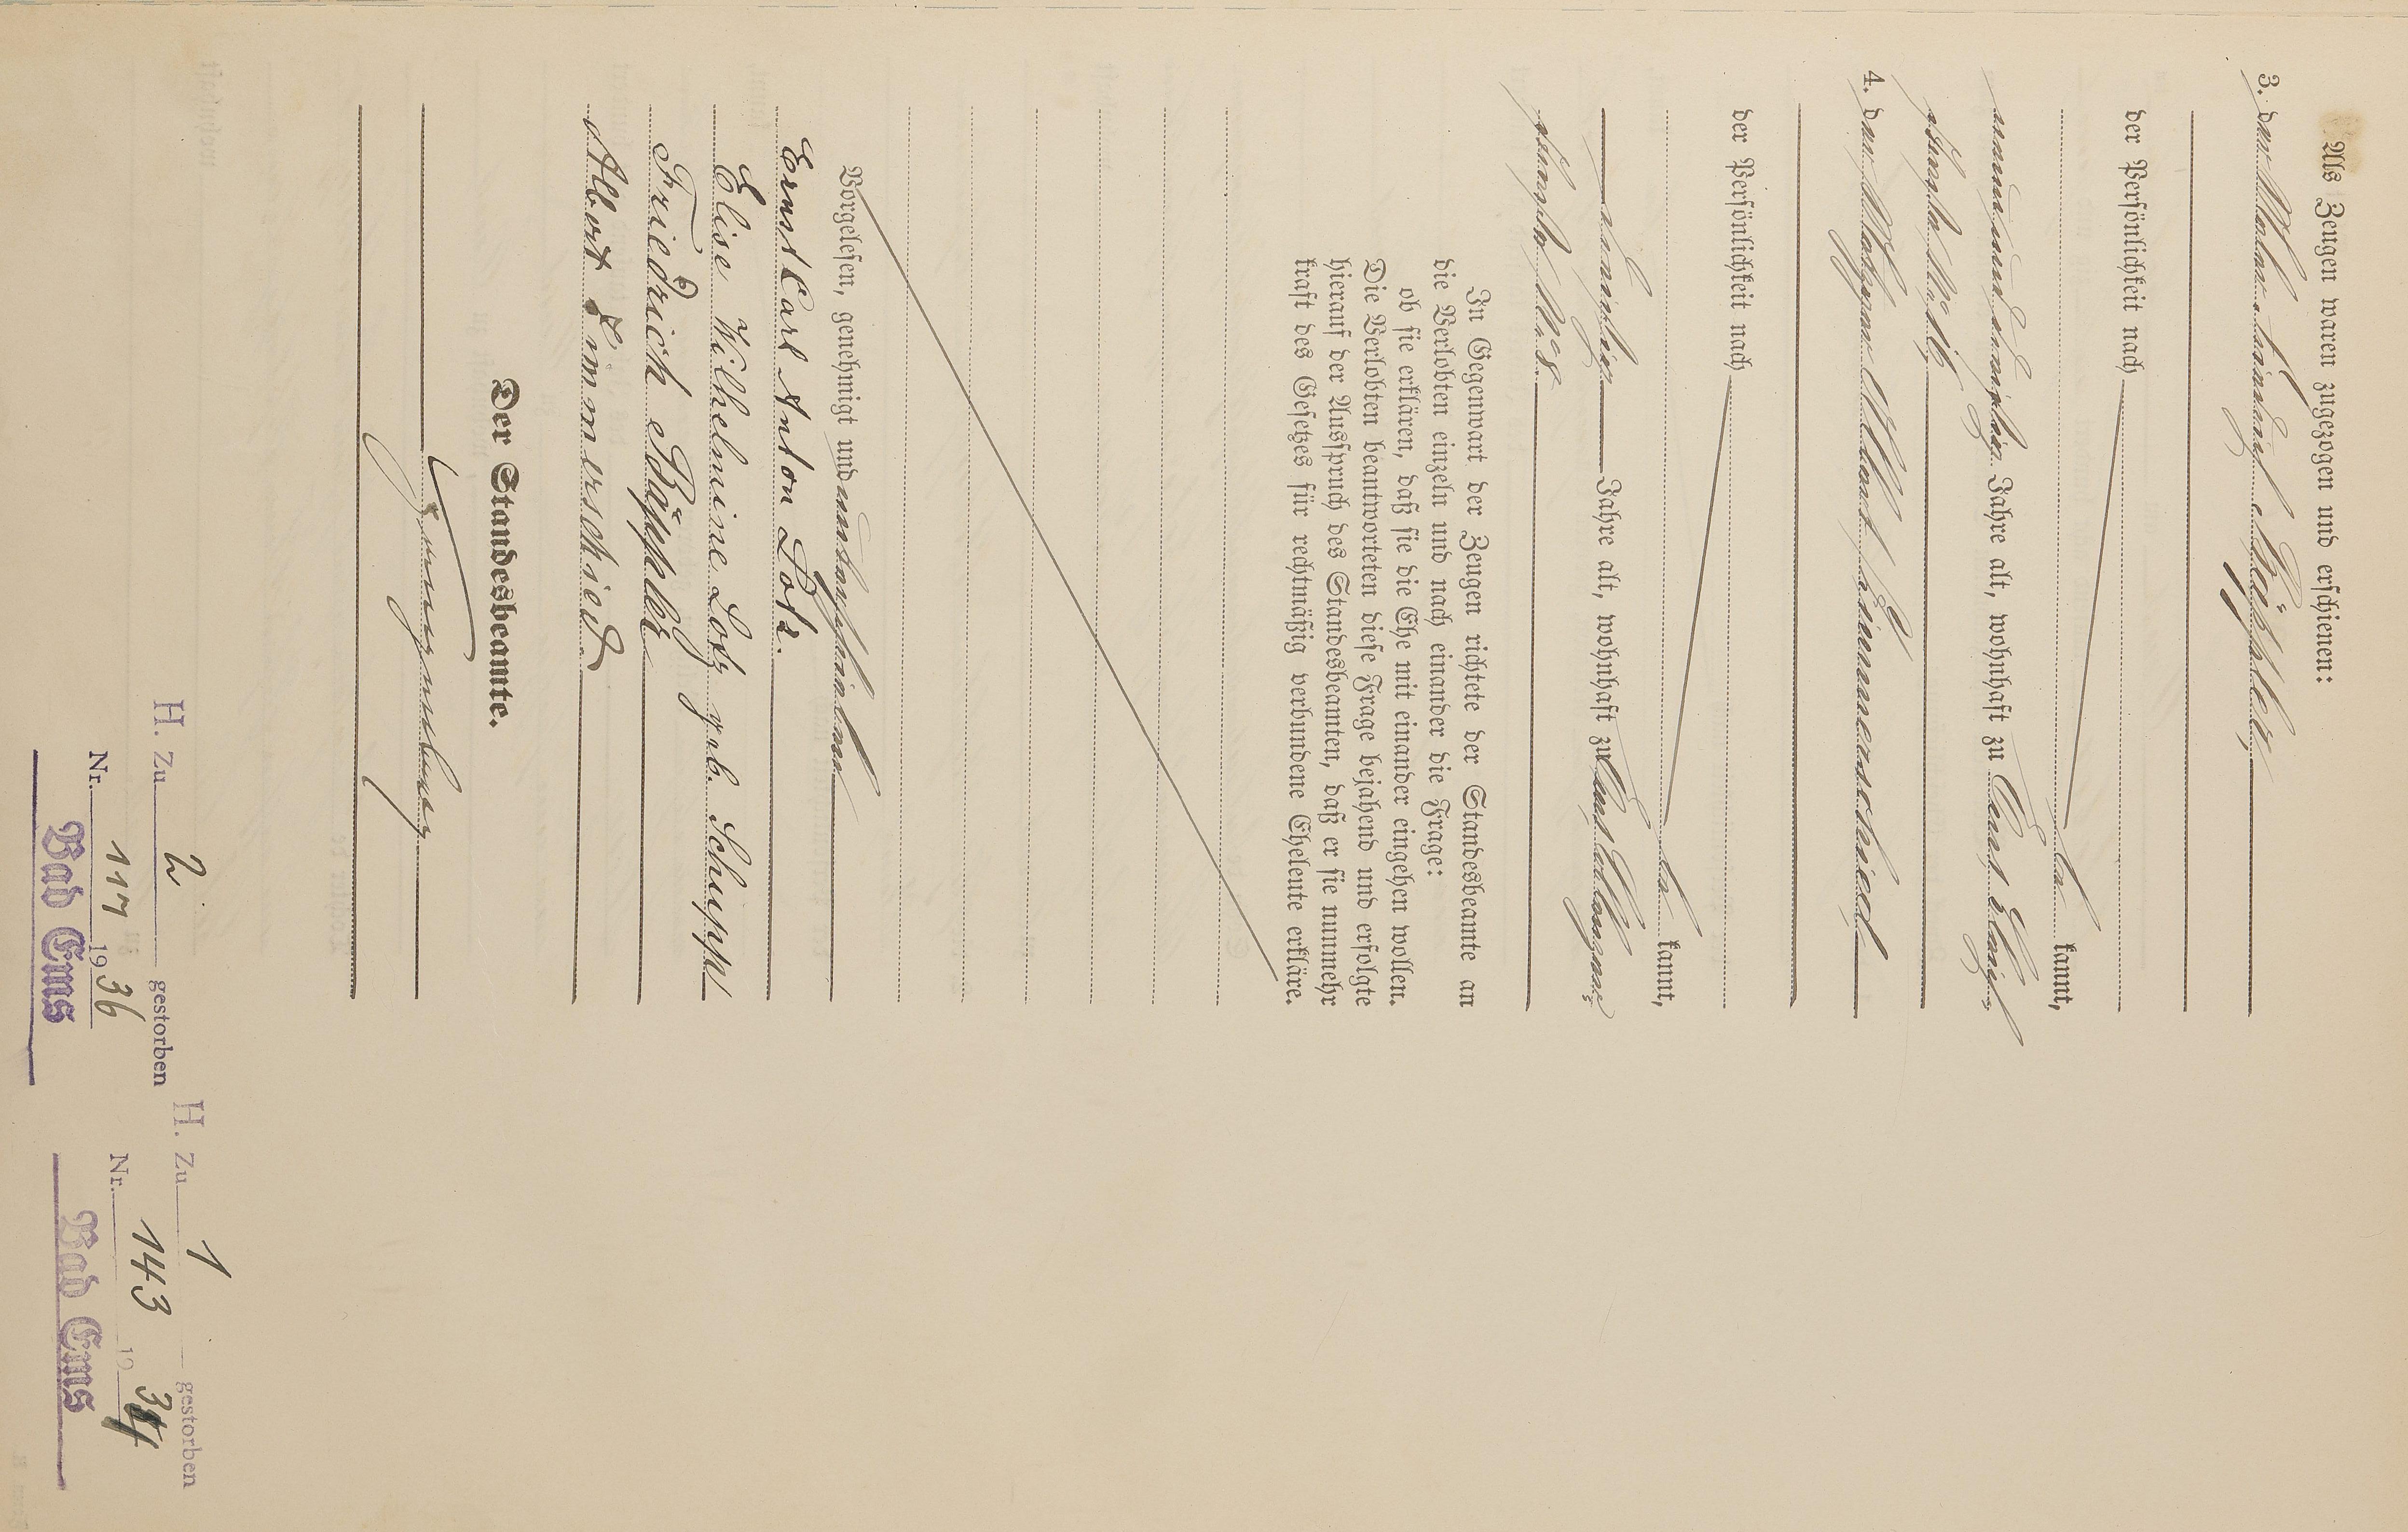 Als Zeugen waren zugezogen und erschienen:
3. der Maler Friedrich Bäppler,
der Persönlichkeit nach
be kannt,
neunundzwanzig Jahre alt, wohnhaft zu
straße № 16.
4. der Albert Limmerschied
der Persönlichkeit nach
be kannt,
dreißig Jahre alt, wohnhaft zu
straße № 8.
In Gegenwart der Zeugen richtete der Standesbeamte an
die Verlobten einzeln und nach einander die Frage:
ob sie erklären, daß sie die Ehe mit einander eingehen wollen.
Die Verlobten beantworteten diese Frage bejahend und erfolgte
hierauf der Ausspruch des Standesbeamten, daß er sie nunmehr
kraft des Gesetzes für rechtmäßig verbundene Eheleute erkläre.
Vorgelesen, genehmigt und unterschrieben
Ernst Carl Anton Lotz.
Elise Wilhelmine Lotz geb. Schupp
Friedrich Bäppler
Albert Limmerschied.
Der Standesbeamte.
H. Zu 2 gestorben
Nr. 117 1936
Bad Ems
H. Zu 1 gestorben
Nr. 143 1934
Bad Ems